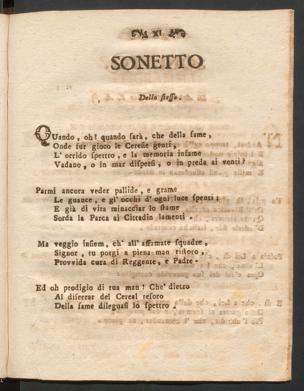 XI
SONETTO
Dello stesso.
Quando, oh! quando sarà, che della fame,
Onde fur gioco le Cereſie genti,
L' orrido spettro, e la memoria infame
Vadano, o in mar dispersi, o in preda ai venti?
Parmi ancora veder pallide, e grame
Le guance, e gl' occhi d' ogni luce spenti;
E già di vita minacciar lo stame
Sorda la Parca ai Cittadin lamenti.
Ma veggio insiem, ch' all' affamate squadre,
Signor, tu porgi a piena man ristoro,
Provvida cura di Reggente, e Padre.
Ed oh prodigio di tua man! Che' dietro
Al disserrar del Cereal tesoro
Della fame dileguasi lo spettro.